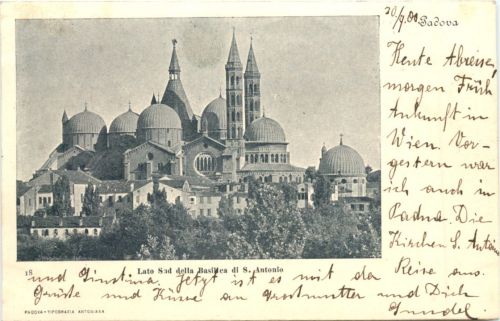 20/9.00.
Padova
Heute Abreise,
morgen Früh
Ankunft in
Wien. Vor-
gestern war
ich auch in
Padua. Die
Kirchen S. Antonio
18
Lato Sud della Basilica di S. Antonio
und Ginstina. Jetzt ist es mit der Reise aus.
Grüße und Küsse an Grossmutter und Dich
Gundel.
PADOVA - TIPOGRAFIA ANTONIANA